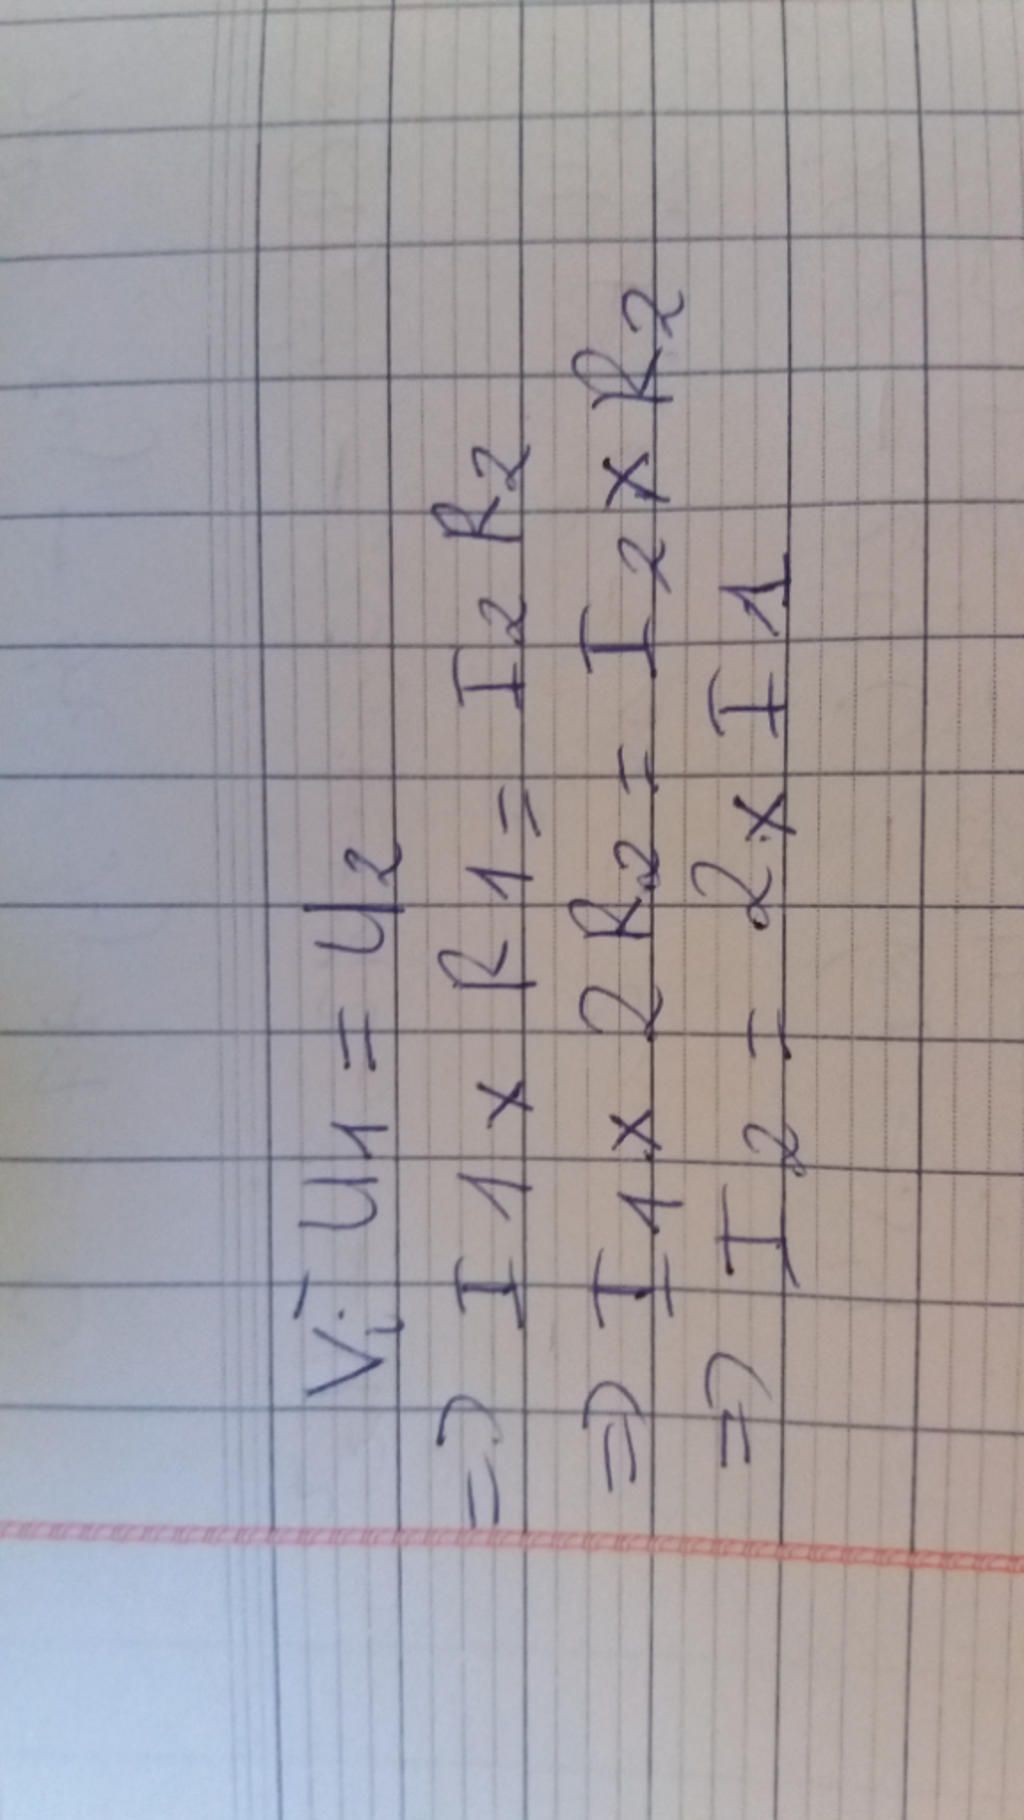 Vì U1 = U2
=> I1 x R1 = I2 R2
=> I1 x 2 R2 = I2 x R2
=> I2 = 2 x I1